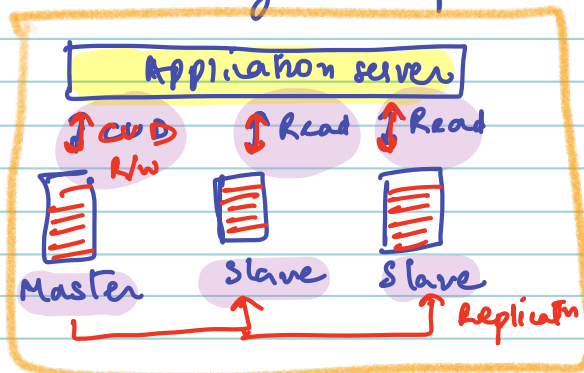 Application server
CUD Read Read
R/W
Master Slave Slave
Replicatn